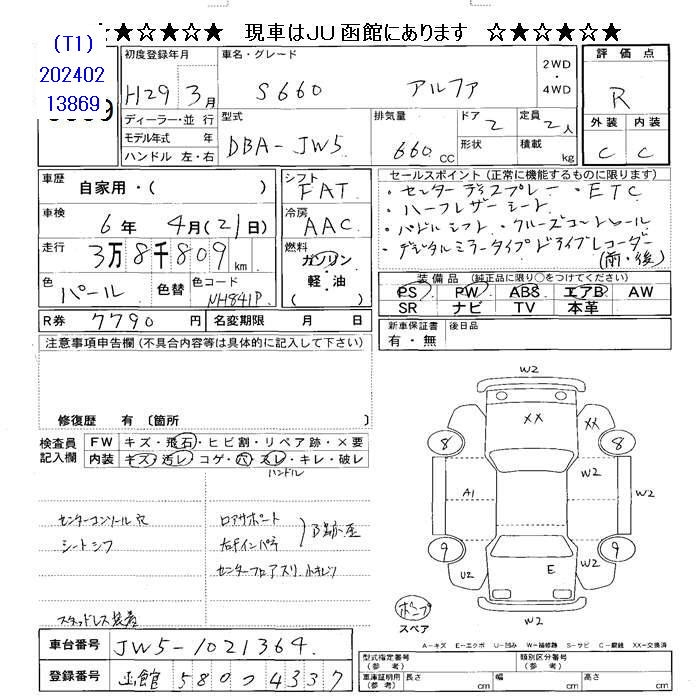 ★☆★☆★ 現車はJU函館にあります ☆★☆★☆★
(T1)
202402
13869
初度登録年月 車名・グレード 2WD・4WD 評価点
H29 3月 S660 アルファ R
ディーラー・並行 型式 排気量 ドア 2 定員 2人 外装 内装
モデル年式 年 DBA-JW5 660cc 形状 積載 kg C C
ハンドル 左・右
車歴 自家用・( ) シフト FAT セールスポイント(正常に機能するものに限ります)
車検 6年 4月(21日) 冷房 AAC ・センターディスプレー ・ETC
・ハーフレザーシート
・パドルシフト ・クルーズコントロール
走行 3万8千809km 燃料 ガソリン・軽油 ( ) ・デジタルミラータイプドライブレコーダー
(前・後)
色 パール 色替 色コード NH841P 装備品(純正品に限り○をつけてください)
PS PW ABS エアB AW
SR ナビ TV 本革
R券 7790円 名変期限 月 日
新車保証書 有・無 後日品
注意事項申告欄(不具合内容等は具体的に記入して下さい)
修復歴 有(箇所
検査員記入欄 FW キズ・飛石・ヒビ割・リペア跡・×要
内装 キズ・汚レ・コゲ・穴・スレ・キレ・破レ
ハンドル
センターコンソール穴 ロアサポート
シートシワ 右Fインパネ
センターフロア
スタッドレス装着
W2
XX XX
8 8
W2
A1 W2 W2
9 9
U2 E W2
W2
スペア
A-キズ E-エクボ U-凹み W-補修跡 S-サビ C-腐蝕 XX-交換済
車台番号 JW5-1021364
登録番号 函館 580 つ 4337
型式指定番号(参考) 類別区分番号(参考)
車庫証明用(参考) 長さ cm 幅 cm 高さ cm